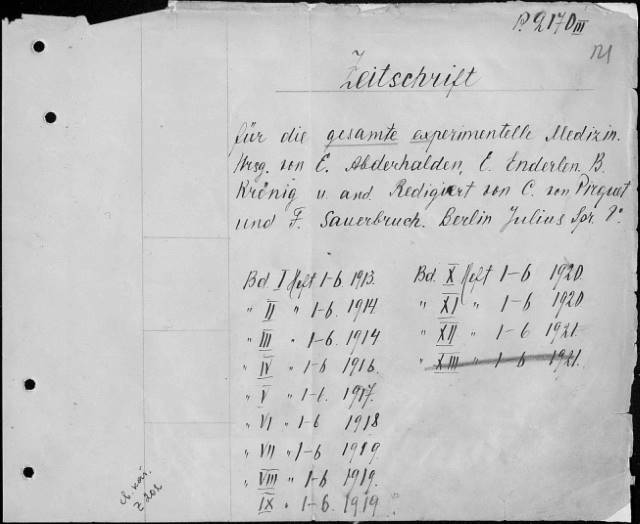 P. 2170 III
Zeitschrift
für die gesamte experimentelle Medizin.
Hrsg. von E. Abderhalden, E. Enderlen, B.
Krönig u. and. Redigiert von C. von Pirquet
und F. Sauerbruch. Berlin Julius Spr. 8°.
Bd. I Heft 1-6. 1913. Bd. X Heft 1-6 1920.
" II " 1-6 1914. " XI " 1-6 1920
" III " 1-6. 1914 " XII " 1-6 1921.
" IV " 1-6 1916. " XIII " 1-6 1921.
" V " 1-6. 1917.
" VI " 1-6 1918
" VII " 1-6. 1919.
" VIII " 1-6. 1919.
IX " 1-6. 1919.